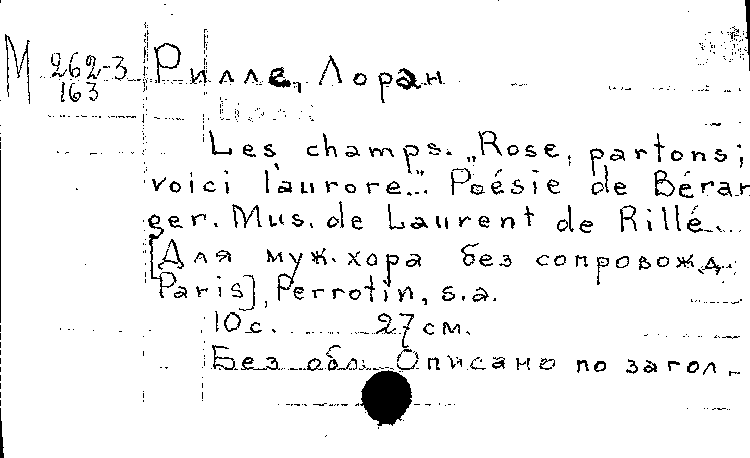 М 262-3 Рилле, Лоран
163
Les champs. „Rose, partons;
voici l'aurore..." Poésie de Béran
ger. Mus. de Laurent de Rillé...
[Для муж. хора без сопровожд.
Paris], Perrotin, s.a.
10 с. 27 см.
Без обл. Описано по загол.